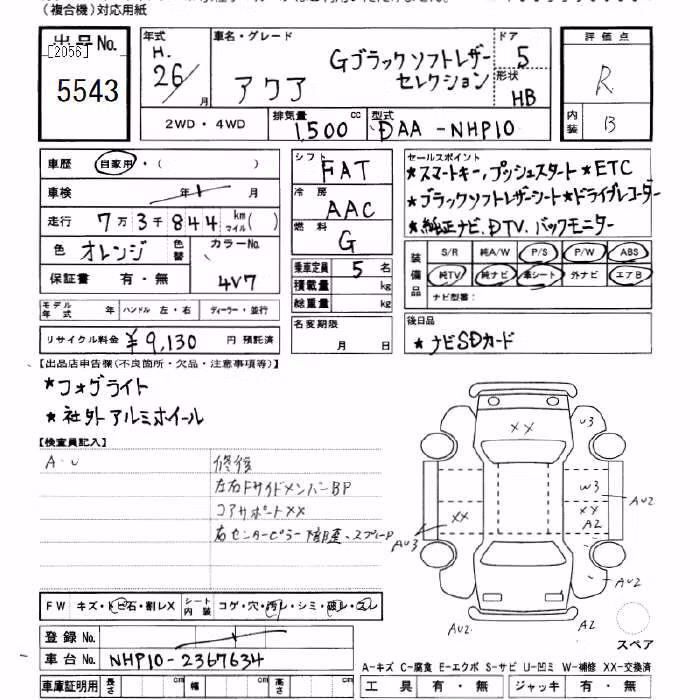 （複合機）対応用紙
出品No.
[2056]
5543
年式
H.
26/
月
車名・グレード
アクア
Gブラックソフトレザー
セレクション
ドア
5
形状
HB
評価点
R
内装
B
2WD・4WD
排気量
1,500
cc
型式
DAA-NHP10
車歴
自家用・（　　）
車検
年
月
走行
7万3千844
km
マイル
(　)
色
オレンジ
色替
カラーNo.
4V7
保証書
有・無
モデル年式
年
ハンドル 左・右
ディーラー・並行
リサイクル料金 ¥9,130 円 預託済
シフト
FAT
冷房
AAC
燃料
G
乗車定員 5 名
積載量 kg
総重量 kg
名変期限
月 日
セールスポイント
★スマートキー,プッシュスタート★ETC
★ブラックソフトレザーシート★ドライブレコーダー
★純正ナビ.DTV.バックモニター
装備品
S/R 純A/W P/S P/W ABS
純TV 純ナビ 革シート 外ナビ エアB
ナビ型番：
後日品
★ナビSDカード
【出品店申告欄(不良箇所・欠品・注意事項等)】
★フォグライト
★社外アルミホイール
【検査員記入】
A・U
修復
左右FサイドメンバーBP
コアサポートXX
右センターピラー
XX
U3
W3
XX
A2
AU2
XX
AU3
AU2
AU2
A2
FW キズ・トビ石・割レX
シート内装
コゲ・穴・汚レ・シミ・破レ・スレ
スペア
登録No.
車台No. NHP10-2367634
A-キズ C-腐食 E-エクボ S-サビ U-凹ミ W-補修 XX-交換済
車庫証明用
長さ cm
幅 cm
高さ cm
工具 有・無
ジャッキ 有・無